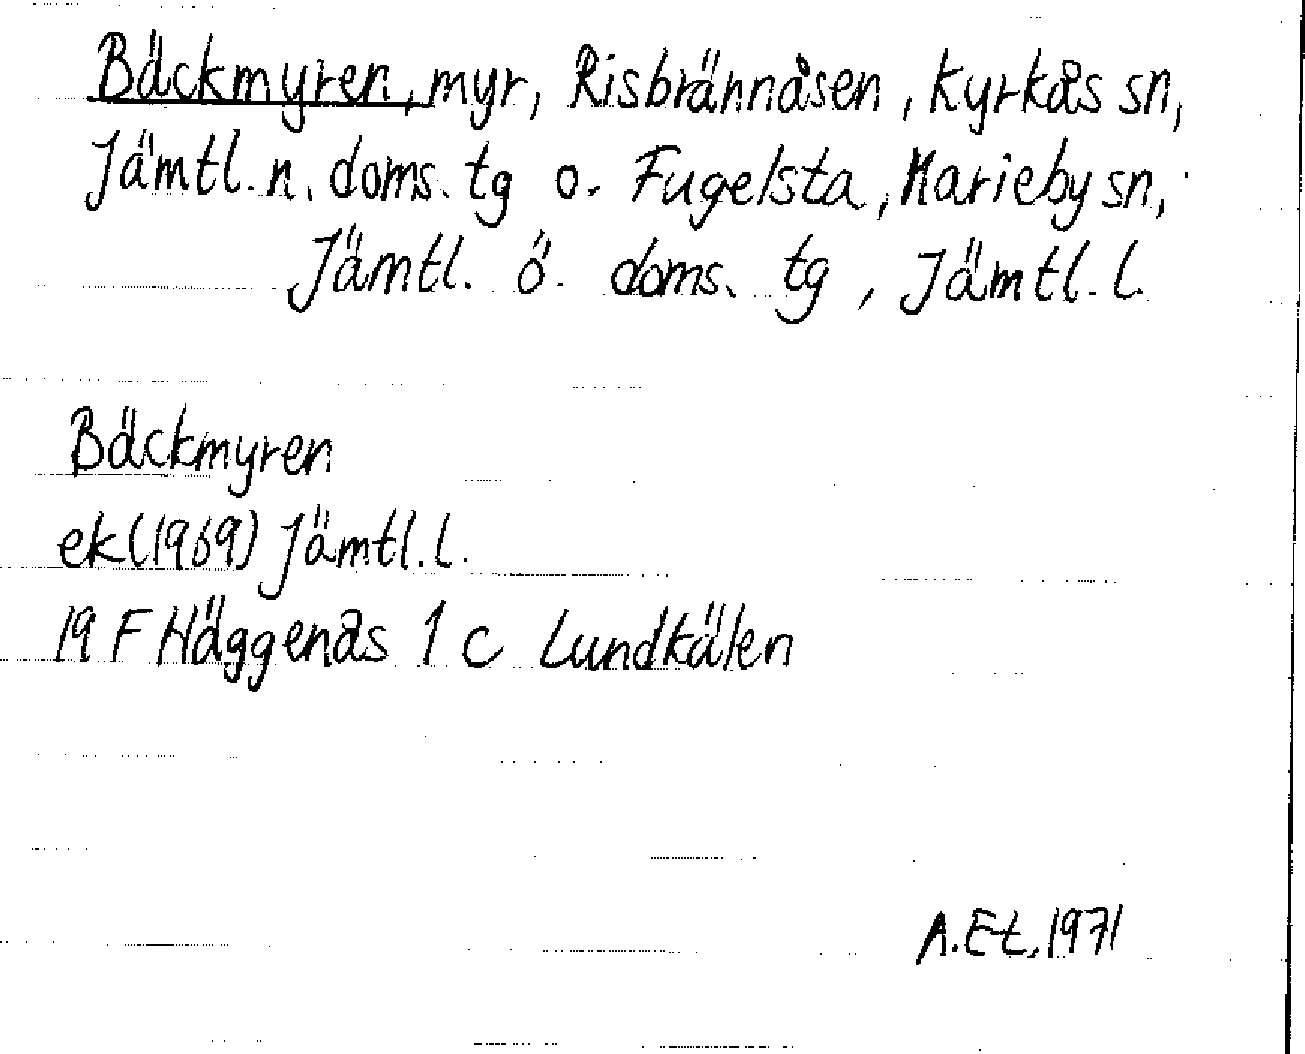 Bäckmyren, myr, Risbrännåsen, Kyrkås sn,
Jämtl. n. doms. tg o. Fugelsta, Marieby sn,
Jämtl. ö. doms. tg, Jämtl. l.
Bäckmyren
ek (1969) Jämtl. l.
19 F Häggenås 1 c Lundkälen
A. Et. 1971